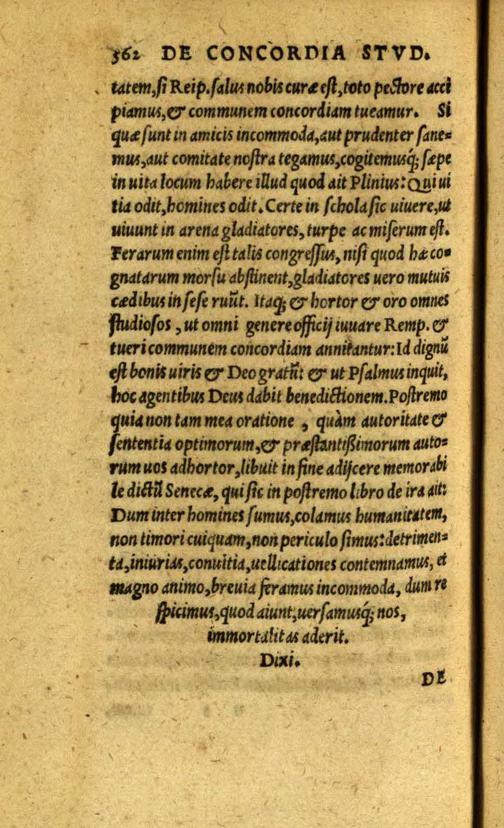 362 DE CONCORDIA STVD.
tatem, si Reip. salus nobis curæ est, toto pectore acci
piamus, & communem concordiam tueamur. Si
quæ sunt in amicis incommoda, aut prudenter sane=
mus, aut comitate nostra tegamus, cogitemusq́; sæpe
in uita locum habere illud quod ait Plinius: Qui ui
tia odit, homines odit. Certe in schola sic uiuere, ut
uiuunt in arena gladiatores, turpe ac miserum est.
Ferarum enim est talis congressus, nisi quod hæ co=
gnatarum morsu abstinent, gladiatores uero mutuis
cædibus in sese ruũt. Itaq; & hortor & oro omnes
studiosos, ut omni genere officij iuuare Remp. &
tueri communem concordiam annitantur: Id dignũ
est bonis uiris & Deo gratũ: & ut Psalmus inquit,
hoc agentibus Deus dabit benedictionem. Postremo
quia non tam mea oratione, quàm autoritate &
sententia optimorum, & præstantißimorum auto=
rum uos adhortor, libuit in fine adijcere memorabi
le dictũ Senecæ, qui sic in postremo libro de ira ait:
Dum inter homines sumus, colamus humanitatem,
non timori cuiquam, non periculo simus: detrimen=
ta, iniurias, conuitia, uellicationes contemnamus, et
magno animo, breuia feramus incommoda, dum re
spicimus, quod aiunt, uersamusq́; nos,
immortalitas aderit.
Dixi.
DE